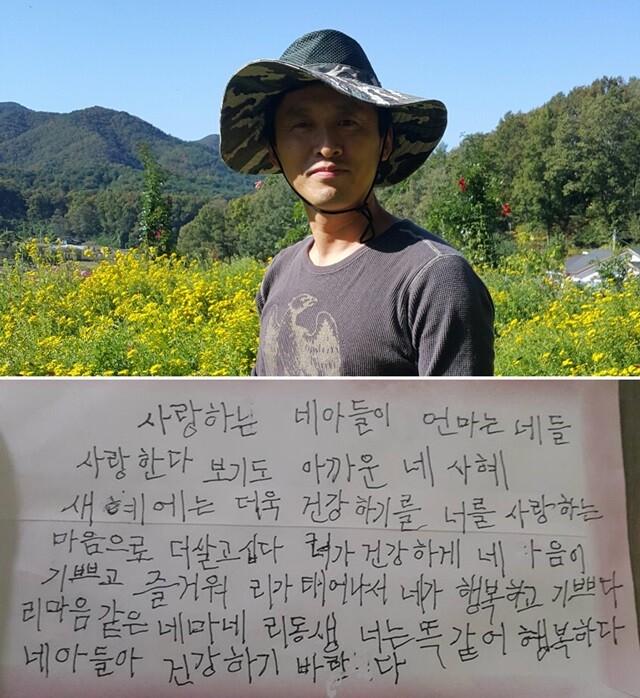 사랑하는 네아들이 언마는 네들
사랑한다 보기도 아까운 네 사혜
새혜에는 더욱 건강하기를 너를 사랑하는
마음으로 더살고십다 건강하게 네
기쁘고 즐거워 리가 태어나서 네가 행복하고 기쁘다
리마음 같은 네마네 리동생 너는 똑같어 행복하다
네아들아 건강하기